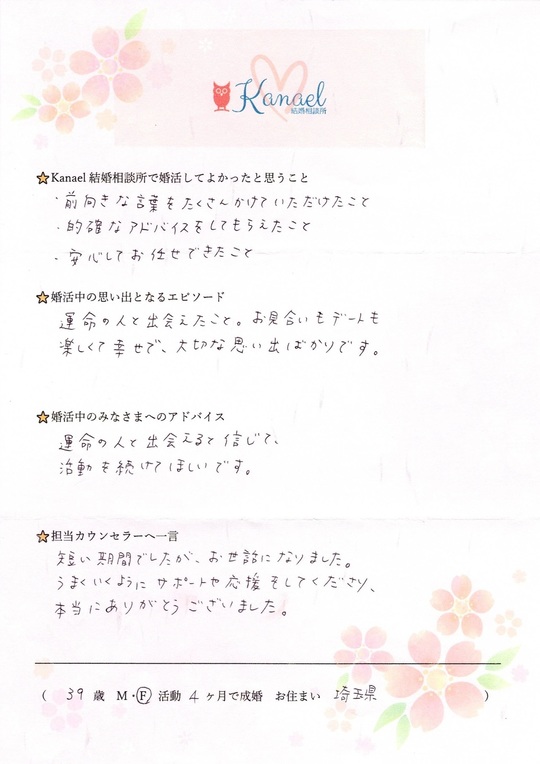 Kanael
結婚相談所
Kanael 結婚相談所で婚活してよかったと思うこと
・前向きな言葉をたくさんかけていただけたこと
・的確なアドバイスをしてもらえたこと
・安心してお任せできたこと
婚活中の思い出となるエピソード
運命の人と出会えたこと。お見合いもデートも
楽しくて幸せで、大切な思い出ばかりです。
婚活中のみなさまへのアドバイス
運命の人と出会えると信じて、
活動を続けてほしいです。
担当カウンセラーへ一言
短い期間でしたが、お世話になりました。
うまくいくようにサポートや応援をしてくださり、
本当にありがとうございました。
( 39 歳 M・F 活動 4 ヶ月で成婚 お住まい 埼玉県 )